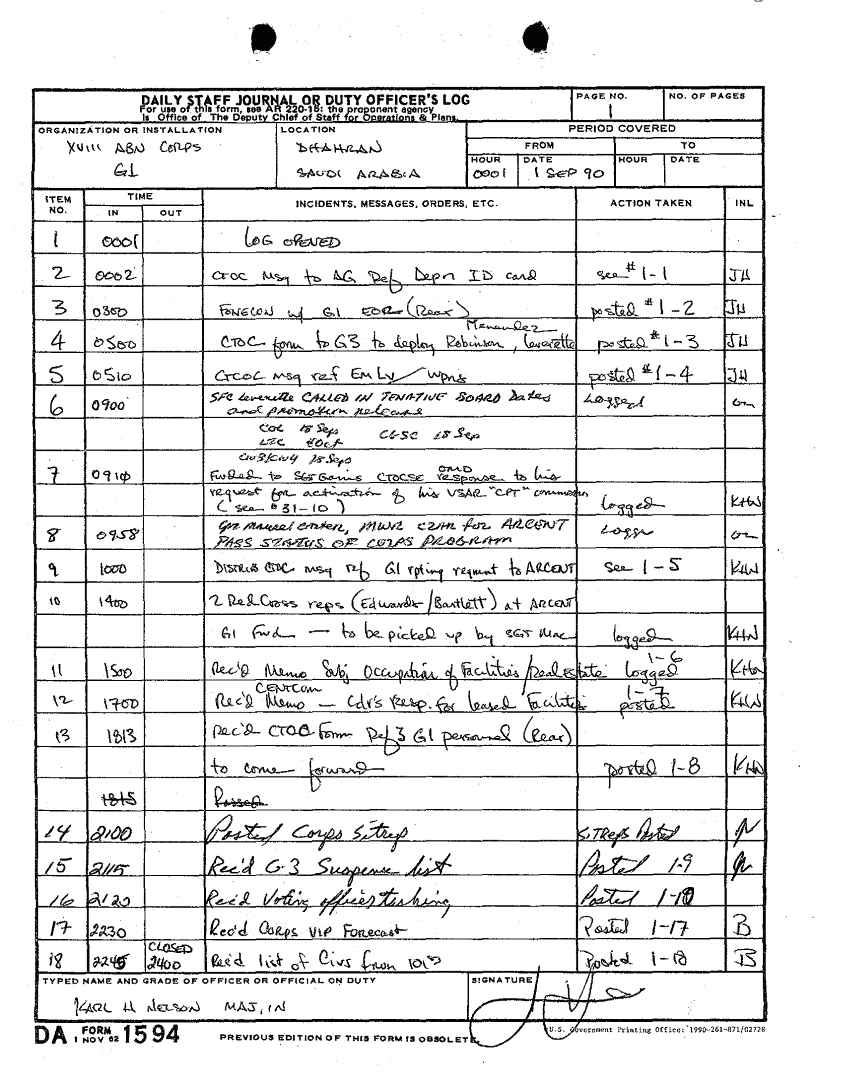 DAILY STAFF JOURNAL OR DUTY OFFICER'S LOG
For use of this form, see AR 220-15; the proponent agency
is Office of The Deputy Chief of Staff for Operations & Plans.
PAGE NO.
1
NO. OF PAGES
ORGANIZATION OR INSTALLATION
XVIII ABN CORPS
G1
LOCATION
DHAHRAN
SAUDI ARABIA
PERIOD COVERED
FROM
TO
HOUR
0001
DATE
1 SEP 90
HOUR
DATE
ITEM NO.
TIME
IN
OUT
INCIDENTS, MESSAGES, ORDERS, ETC.
ACTION TAKEN
INL
1 0001 LOG OPENED
2 0002 CTOC Msg to AG Ref Depn ID card see #1-1 JH
3 0300 FONECON w/ G1 EOR (Rear) posted #1-2 JH
Menendez
4 0500 CTOC form to G3 to deploy Robinson, Leverette posted #1-3 JH
5 0510 CTCOC msg ref EMLy/Wpns posted #1-4 JH
6 0900 SFC Leverette CALLED IN TENATIVE BOARD Dates Logged
and promotion release
COL 18 Sep
CGSC 18 Sep
7 0910 Fwded to SGT Gains CTOCSE response to his
request for activation of his USAR "CPT" commission logged KHN
(see #31-10)
8 0958 CZAR for ARCENT
PASS STATUS OF CORPS PROGRAM
9 1000 Distrib CTOC msg ref G1 rpting reqmnt to ARCENT see 1-5 KHN
10 1400 2 Red Cross reps (Edwards/Bartlett) at ARCENT
G1 Fwd — to be picked up by SGT Mac logged KHN
11 1500 Rec'd Memo Subj Occupation of Facilities/real estate logged 1-6 KHN
CENTCOM
12 1700 Rec'd Memo — Cdr's Resp. for leased Facilities 1-7 posted KHN
13 1813 Rec'd CTOC Form Ref 3 G1 personnel (Rear)
to come forward posted 1-8 KHN
1815 Passed
14 2100 Posted Corps Sitrep SITREPs Posted
15 2115 Rec'd G-3 Suspense list Posted 1-9
16 2120 Rec'd Voting officer tasking Posted 1-10
17 2230 Rec'd Corps VIP Forecast Posted 1-17 B
CLOSED
18 2245 2400 Rec'd list of Civs from 101st Posted 1-18 B
TYPED NAME AND GRADE OF OFFICER OR OFFICIAL ON DUTY
KARL H NELSON MAJ, IN
SIGNATURE
DA FORM 1 NOV 62 1594
PREVIOUS EDITION OF THIS FORM IS OBSOLETE.
U.S. Government Printing Office: 1990-261-871/02728